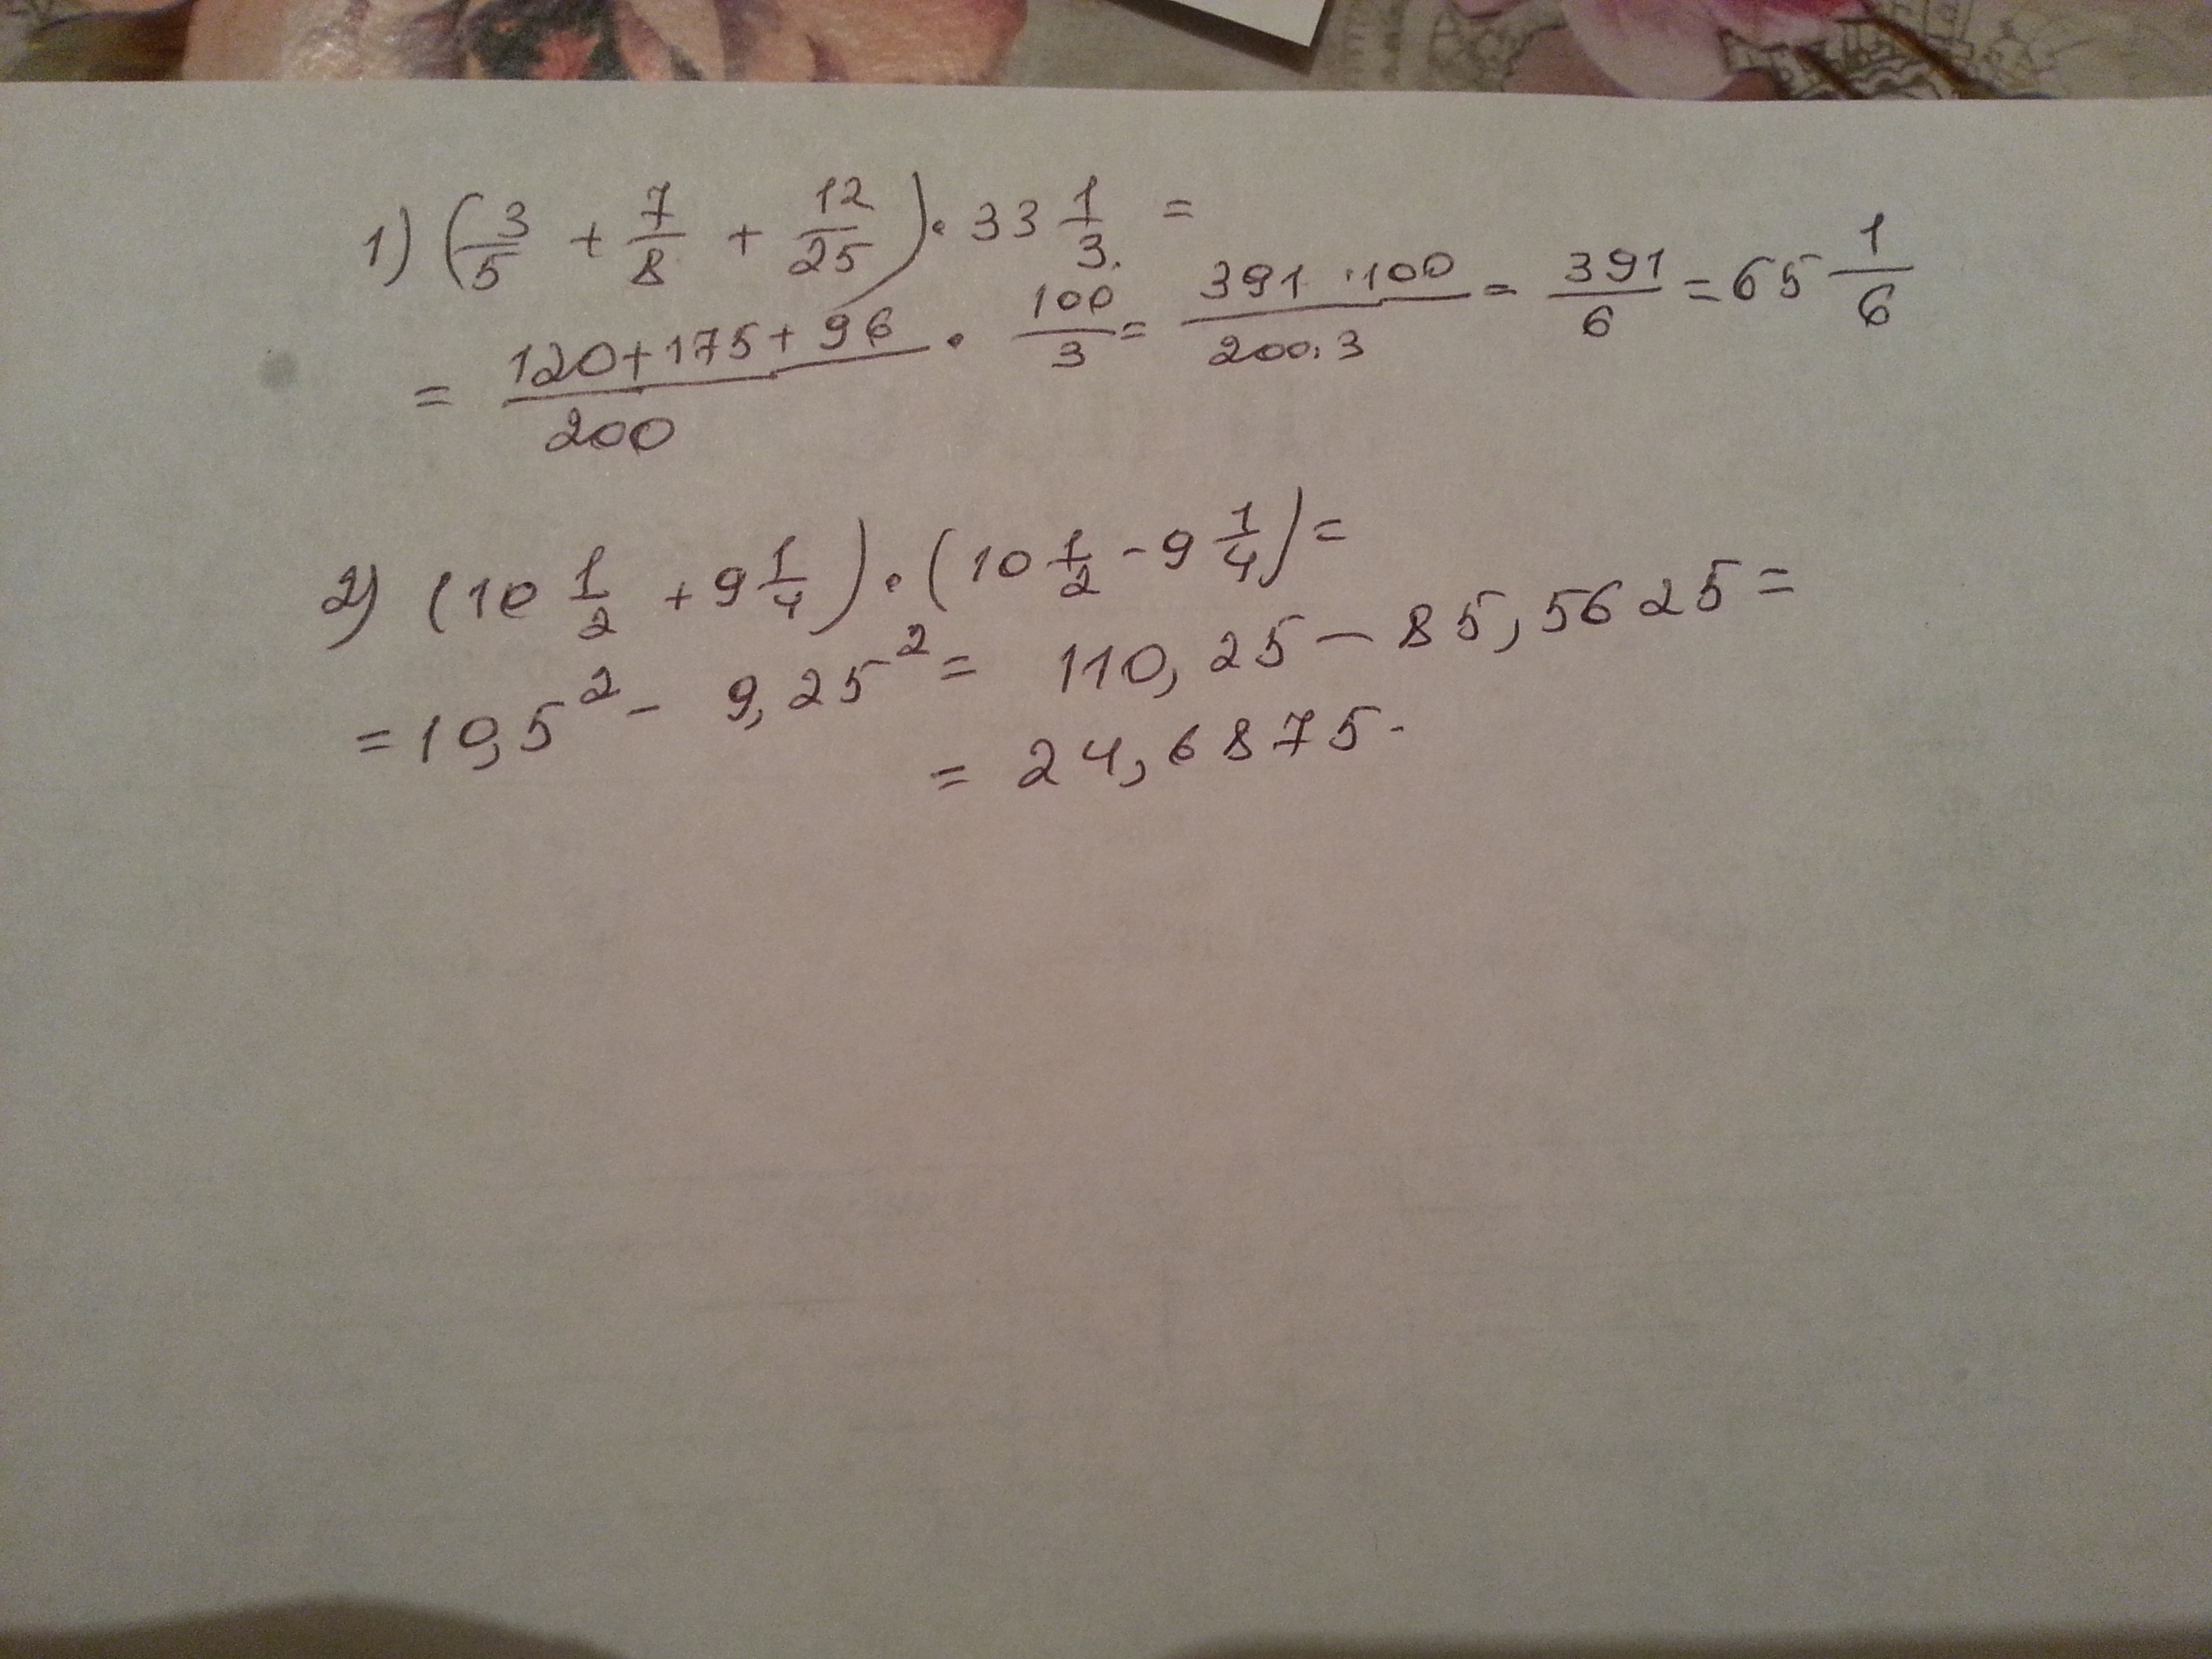 1) (3/5 + 7/8 + 12/25) · 33 1/3 =
= (120+175+96)/200 · 100/3 = (391 · 100)/(200 · 3) = 391/6 = 65 1/6
2) (10 1/2 + 9 1/4) · (10 1/2 - 9 1/4) =
= 10,5² - 9,25² = 110,25 - 85,5625 =
= 24,6875.